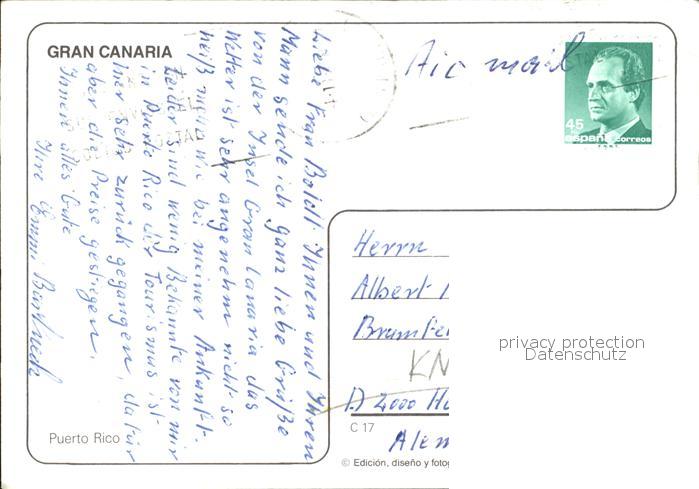 GRAN CANARIA
Liebe Frau Boldt! Ihnen und Ihren
Mann sende ich ganz liebe Grüße
von der Insel Gran Canaria das
Wetter ist sehr angenehm nicht so
heiß mehr wie bei meiner Ankunft.
Leider sind wenig Bekannte von mir
in Puerto Rico der Tourismus ist
hier sehr zurück gegangen, dafür
aber die Preise gestiegen.
Ihnen alles Gute
Ihre Emmi
Puerto Rico
Air mail
45
españa correos
Herrn
Albert
KN
D 2000 Ha
Alem
C 17
© Edición, diseño y fotog
privacy protection
Datenschutz